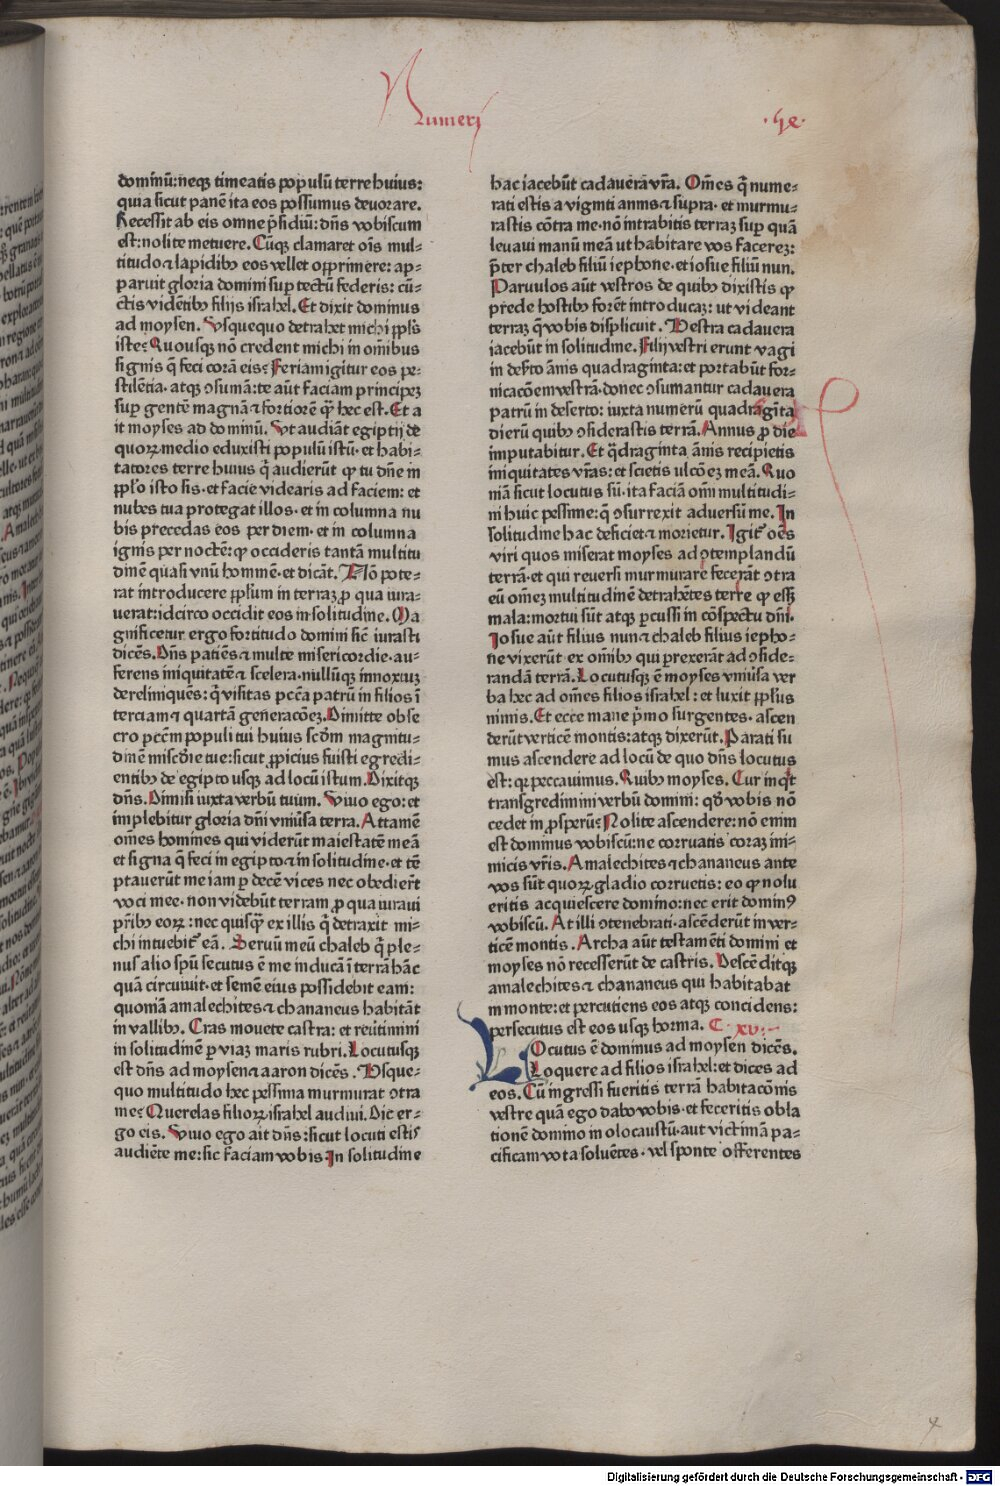 Numeri
·he·
dominū: neqꝫ timeatis populū terre huius:
quia sicut panē ita eos possumus deuorare.
Recessit ab eis omne p̄sidiū: dn̄s vobiscum
est: nolite metuere. Cūqꝫ clamaret oīs mul-
titudo ⁊ lapidibꝰ eos vellet opprimere: ap-
paruit gloria domini suꝑ tectū federis: cū-
ctis vidētibꝰ filijs israhel. Et dixit dominus
ad moysen. Vsquequo detrahet michi ppl̄s
iste? Quousqꝫ nō credent michi in om̄ibus
signis q̄ feci corā eis? Feriam igitur eos pe-
stilētia· atqꝫ ꝯsumā: te aūt faciam principeꝫ
suꝑ gentē magnā ⁊ fortiorē q̄ꝫ hec est. Et a
it moyses ad dominū. Vt audiāt egiptij de
quoꝝ medio eduxisti populū istū· et habi-
tatores terre huius q̄ audierūt qꝫ tu dn̄e in
pplo isto sis· et facie videaris ad faciem: et
nubes tua protegat illos· et in columna nu
bis precedas eos per diem· et in columna
ignis per noctē: qꝫ occideris tantā multitu
dinē quasi vnū hominē· et dicāt. Nō pote-
rat introducere pplum in terraꝫ ꝓ qua iura-
uerat: idcirco occidit eos in solitudine. Ma
gnificetur ergo fortitudo domini sic̄ iurasti
dicēs. Dn̄s patiēs ⁊ multe misericordie· au-
ferens iniquitatē ⁊ scelera· nullūqꝫ innoxiuꝫ
derelinquēs: q̄ visitas pctā patrū in filios ī
terciam ⁊ quartā generacōeꝫ. Dimitte obse
cro pctm̄ populi tui huius scd̄m magnitu-
dinē miscd̄ie tue: sicut ꝓpicius fuisti egredi-
entibꝰ de egipto usqꝫ ad locū istum. Dixitqꝫ
dn̄s. Dimisi iuxta verbū tuum. Viuo ego: et
implebitur gloria dn̄i vniūsa terra. Attamē
om̄es homines qui viderūt maiestatē meā
et signa q̄ feci in egipto ⁊ in solitudine· et tē
ptauerūt me iam ꝑ decē vices nec obedier̄t
voci mee· non videbūt terram ꝓ qua iuraui
pr̄ibꝰ eoꝝ: nec quisq̄ꝫ ex illis q̄ detraxit mi-
chi intuebit̄ eā. Seruū meū chaleb q̄ ple-
nus alio spū secutus ē me inducā ī terrā hāc
quā circuiuit· et semē eius possidebit eam:
quoniā amalechites ⁊ chananeus habitāt
in vallibꝰ. Cras mouete castra: et reūtimini
in solitudinē ꝑ viaꝫ maris rubri. Locutusqꝫ
est dn̄s ad moysen ⁊ aaron dicēs. Vsque-
quo multitudo hec pessima murmurat ꝯtra
me? Querelas filioꝝ israhel audiui. Dic er-
go eis. Viuo ego ait dn̄s: sicut locuti estis
audiēte me: sic faciam vobis. In solitudine
hac iacebūt cadauera vr̄a. Om̄es q̄ nume-
rati estis a viginti annis ⁊ supra· et murmu-
rastis cōtra me· nō intrabitis terraꝫ suꝑ quā
leuaui manū meā ut habitare vos facereꝫ:
p̄ter chaleb filiū iephone· et iosue filiū nun.
Paruulos aūt vestros de quibꝰ dixistis qꝫ
prede hostibꝰ forēt introducaꝫ: ut videant
terraꝫ q̄ vobis displicuit. Vestra cadauera
iacebūt in solitudine. Filij vestri erunt vagi
in deser̄to ānis quadraginta: et portabūt for-
nicacōem vestrā· donec ꝯsumantur cadauera
patrū in deserto: iuxta numerū quadraginta
dierū quibꝰ ꝯsiderastis terrā. Annus ꝓ die
imputabitur. Et q̄draginta ānis recipietis
iniquitates vr̄as: et scietis ulcōeꝫ meā. Quo
niā sicut locutus sū· ita faciā om̄i multitudi-
ni huic pessime: q̄ ꝯsurrexit aduersū me. In
solitudine hac deficiet ⁊ morietur. Igit̄ oēs
viri quos miserat moyses ad ꝯtemplandū
terrā· et qui reuersi murmurare fecerāt ꝯtra
eū om̄eꝫ multitudinē detrahētes terre qꝫ esseꝫ
mala: mortui sūt atqꝫ ꝑcussi in cōspectu dn̄i.
Iosue aūt filius nun ⁊ chaleb filius iepho-
ne vixerūt ex om̄ibꝰ qui perrexerāt ad ꝯside-
randā terrā. Locutusqꝫ ē moyses vniūsa ver
ba hec ad om̄es filios israhel: et luxit pplus
nimis. Et ecce mane p̄mo surgentes· ascen
derūt verticē montis: atqꝫ dixerūt. Parati su
mus ascendere ad locū de quo dn̄s locutus
est: qꝛ peccauimus. Quibꝰ moyses. Cur inq̄t
transgredimini verbū domini: qd̄ vobis nō
cedet in ꝓsperū? Nolite ascendere: nō enim
est dominus vobiscū: ne corruatis coraꝫ ini-
micis vr̄is. Amalechites ⁊ chananeus ante
vos sūt quoꝝ gladio corruetis: eo qꝫ nolu
eritis acquiescere domino: nec erit dominꝰ
vobiscū. At illi ꝯtenebrati· ascēderūt in ver-
ticē montis. Archa aūt testamēti domini et
moyses nō recesserūt de castris. Descēditqꝫ
amalechites ⁊ chananeus qui habitabat
in monte: et percutiens eos atqꝫ concidens:
persecutus est eos usqꝫ horma. C· xv·
LOcutus ē dominus ad moysen dicēs.
Loquere ad filios israhel: et dices ad
eos. Cū ingressi fueritis terrā habitacōnis
vestre quā ego dabo vobis· et feceritis obla
tionē domino in olocaustū· aut victimā pa-
cificam vota soluētes· vel sponte offerentes
Digitalisierung gefördert durch die Deutsche Forschungsgemeinschaft - DFG